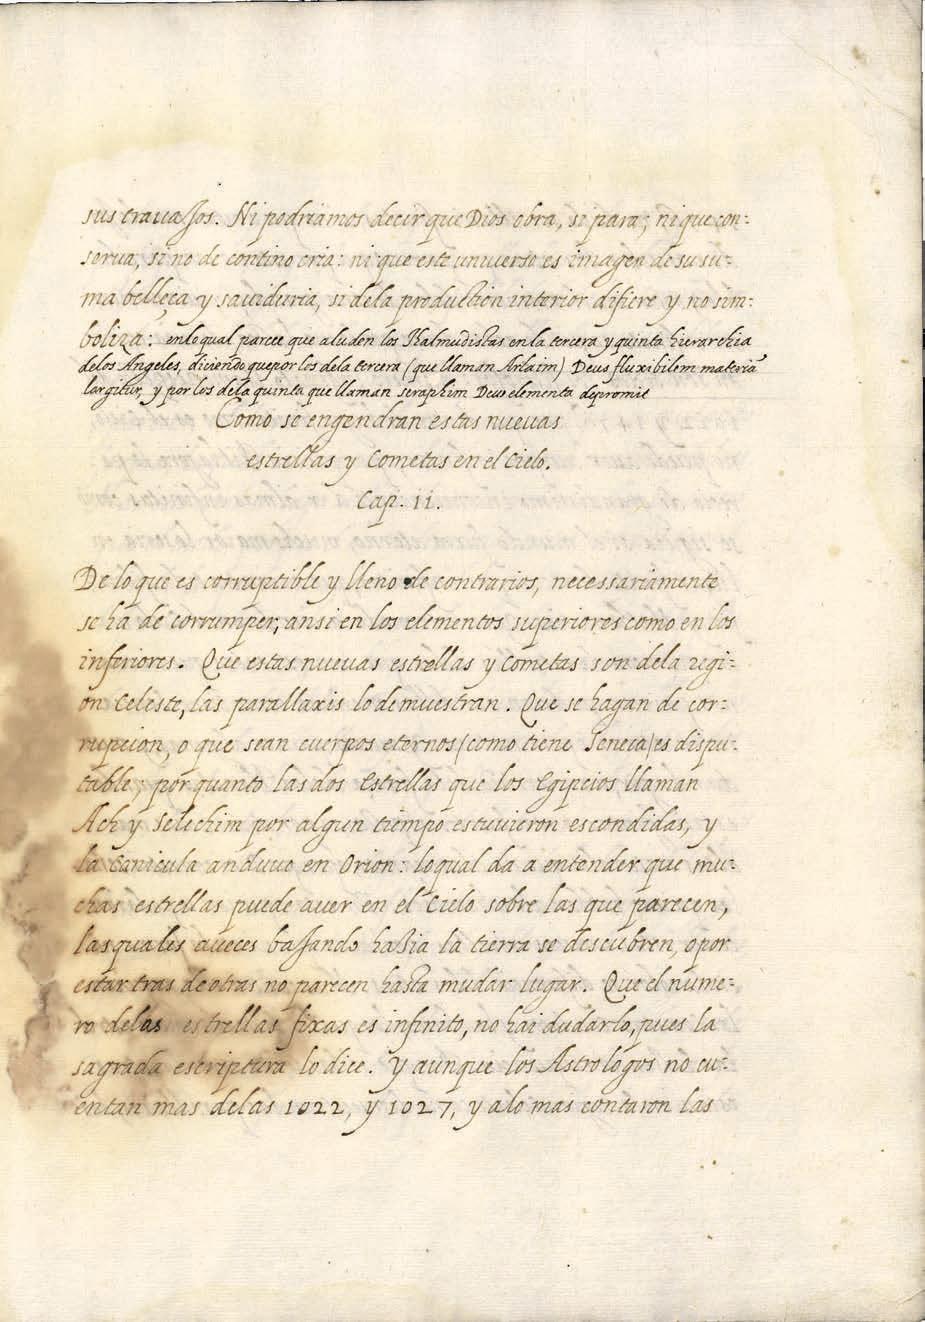 sus travaJos. Ni podriamos decir que Dios obra, si para; ni que con:
serva, si no de contino cria: ni que este universo es imagen de su su:
ma belleça y saviduria, si dela production interior difiere y no sim:
boliza: enlo qual parece que aluden los Thalmudistas en la tercera y quinta hierarchia
delos Angeles, diciendo que por los dela tercera (que llaman Arlaim) Deus fluxibilem materiã
largitur, y por los dela quinta que llaman seraphim Deus elementa depromit
Como se engendran estas nuevas
estrellas y Cometas en el Cielo.
Cap. ii.
De lo que es corruptible y lleno de contrarios, necessariamente
se ha de corrumper, ansi en los elementos superiores como en los
inferiores. Que estas nuevas estrellas y Cometas son dela regi:
on Celeste, las parallaxis lo demuestran. Que se hagan de cor:
rupcion, o que sean cuerpos eternos (como tiene Seneca) es dispu:
table; por quanto las dos Estrellas que los Egipcios llaman
Ach y Selechim por algun tiempo estuvieron escondidas, y
la Canicula anduvo en Orion: lo qual da a entender que mu:
chas estrellas puede aver en el Cielo sobre las que parecen,
las quales aveces baJando haSia la tierra se descubren, o por
estar tras de otras no parecen hasta mudar lugar. Que el nume:
ro delas estrellas fixas es infinito, no hai dudarlo, pues la
sagrada escriptura lo dice. Y aunque los Astrologos no cu:
entan mas delas 1022, y 1027, y alo mas contaron las